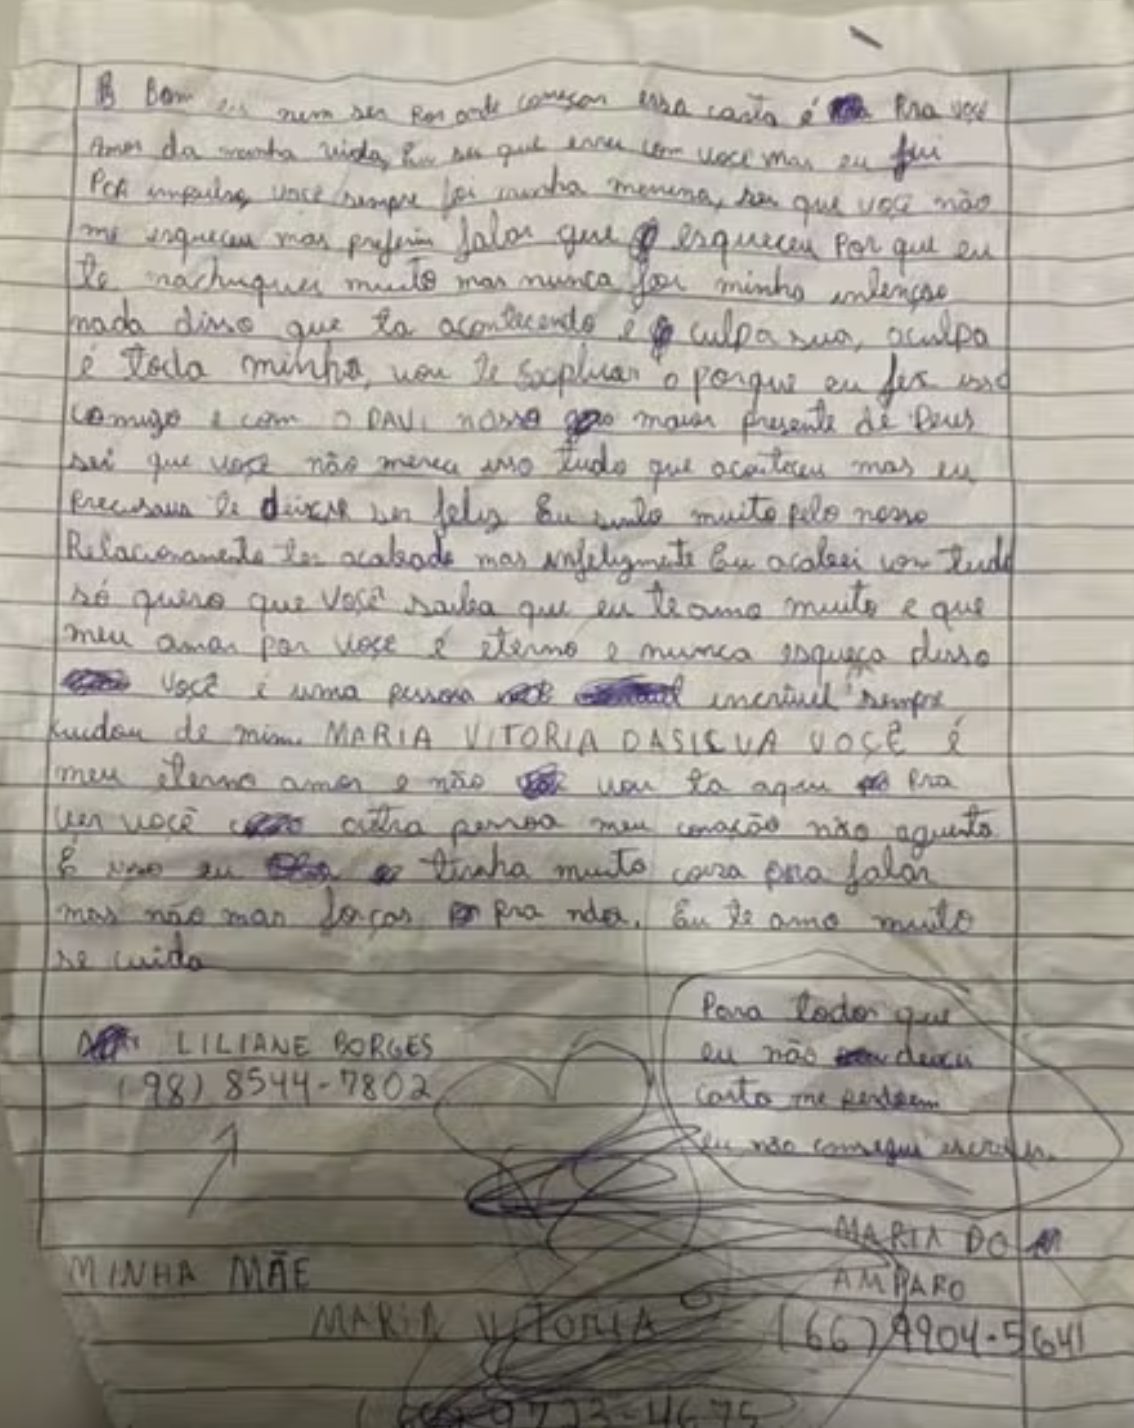 Bom eu nem sei Por onde começar essa carta é Pra você
Amor da minha vida, Eu sei que errei com você mas eu fui
Por impulso, você sempre foi minha menina, sei que você não
me esqueceu mas preferiu falar que esqueceu Por que eu
te machuquei muito mas nunca foi minha intenção
nada disso que ta acontecendo é culpa sua, aculpa
é toda minha, vou te explicar o porque eu fez isso
comigo e com o DAVI nosso maior presente de Deus
sei que você não merece isso tudo que aconteceu mas eu
Precisava te deixar ser feliz Eu sinto muito pelo nosso
Relacionamento ter acabado mas infelizmente Eu acabei com tudo
só quero que Você saiba que eu te amo muito e que
meu amor por você é eterno e nunca esqueça disso
Você é uma pessoa incrivel sempre
cuidou de mim. MARIA VITORIA DASILVA VOCÊ é
meu eterno amor e não vou ta aqui Pra
ver você outra pessoa meu coração não aguenta
É isso eu tinha muito coisa pra falar
mas não mas forças pra nda. Eu te amo muito
se cuida
Para todos que
eu não deixei
carta me perdoem
eu não consegui escrever.
LILIANE BORGES
(98) 8544-7802
MINHA MÃE
MARIA DO
AMPARO
(66) 9904-5641
MARIA VITORIA
9723-4675